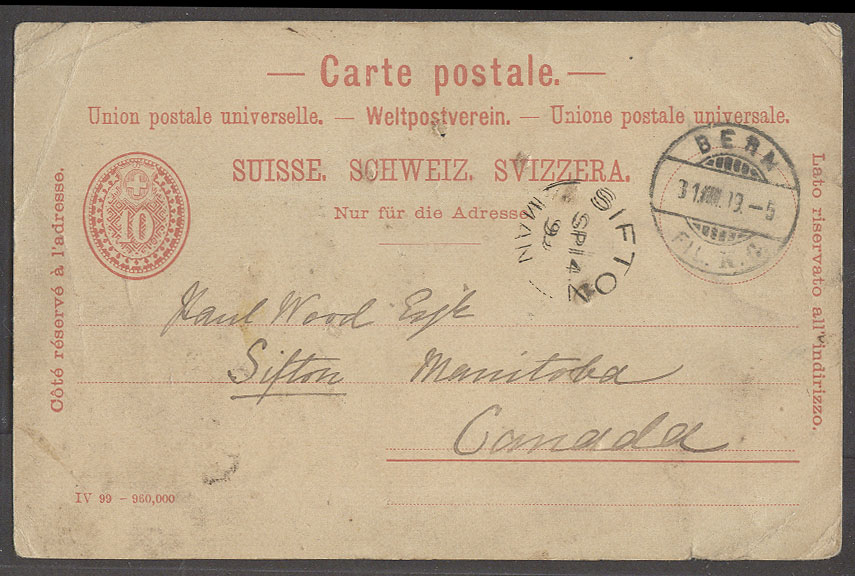 — Carte postale. —
Union postale universelle. — Weltpostverein. — Unione postale universale.
SUISSE. SCHWEIZ. SVIZZERA.
Nur für die Adresse
10
BERN
FIL. K.
SIFTON
SP 14
MAN
Côté réservé à l'adresse.
Lato riservato all'indirizzo.
Wood Esqr
Sifton Manitoba
Canada
IV 99 - 960,000